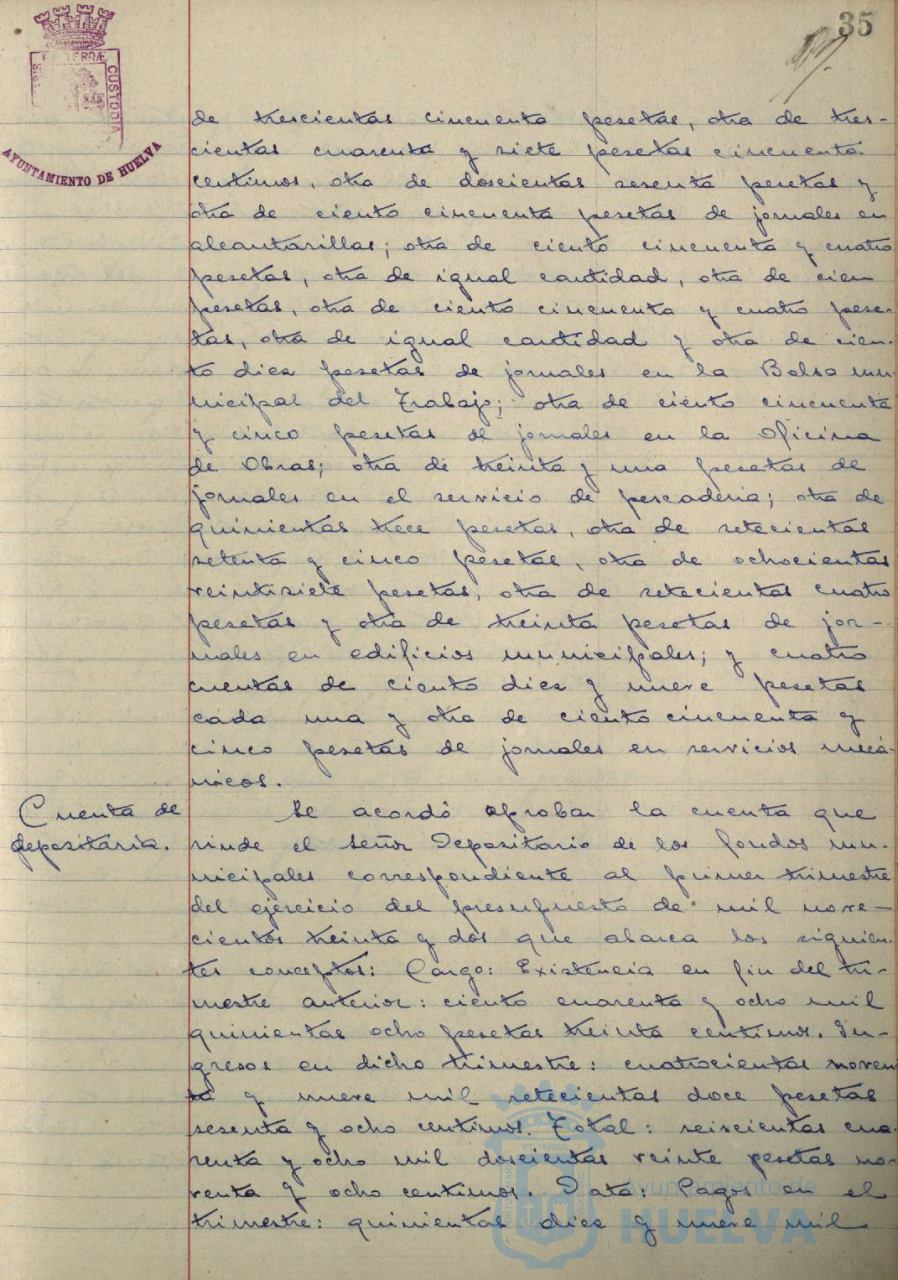 35
PORTUS MARIS ET TERRÆ CUSTODIA
AYUNTAMIENTO DE HUELVA
de trescientas cincuenta pesetas, otra de tres-
cientas cuarenta y siete pesetas cincuenta
centimos, otra de doscientas sesenta pesetas y
otra de ciento cincuenta pesetas de jornales en
alcantarillas; otra de ciento cincuenta y cuatro
pesetas, otra de igual cantidad, otra de cien
pesetas, otra de ciento cincuenta y cuatro pese-
tas, otra de igual cantidad y otra de cien-
to diez pesetas de jornales en la Bolsa mu-
nicipal del Trabajo; otra de ciento cincuenta
y cinco pesetas de jornales en la Oficina
de Obras; otra de treinta y una pesetas de
jornales en el servicio de pescaderia; otra de
quinientas trece pesetas, otra de setecientas
setenta y cinco pesetas, otra de ochocientas
veintisiete pesetas, otra de setecientas cuatro
pesetas y otra de treinta pesetas de jor-
nales en edificios municipales; y cuatro
cuentas de ciento diez y nueve pesetas
cada una y otra de ciento cincuenta y
cinco pesetas de jornales en servicios mecá-
nicos.
Cuenta de
depositaria.
Se acordó aprobar la cuenta que
rinde el Señor Depositario de los fondos mu-
nicipales correspondiente al primer trimestre
del ejercicio del presupuesto de mil nove-
cientos treinta y dos que abarca los siguien-
tes conceptos: Cargo: Existencia en fin del tri-
mestre anterior: ciento cuarenta y ocho mil
quinientas ocho pesetas treinta centimos. In-
gresos en dicho trimestre: cuatrocientas noven-
ta y nueve mil setecientas doce pesetas
sesenta y ocho centimos. Total: seiscientas cua-
renta y ocho mil doscientas veinte pesetas no-
venta y ocho centimos. Data: Pagos en el
trimestre: quinientas diez y nueve mil
Ayuntamiento de
HUELVA